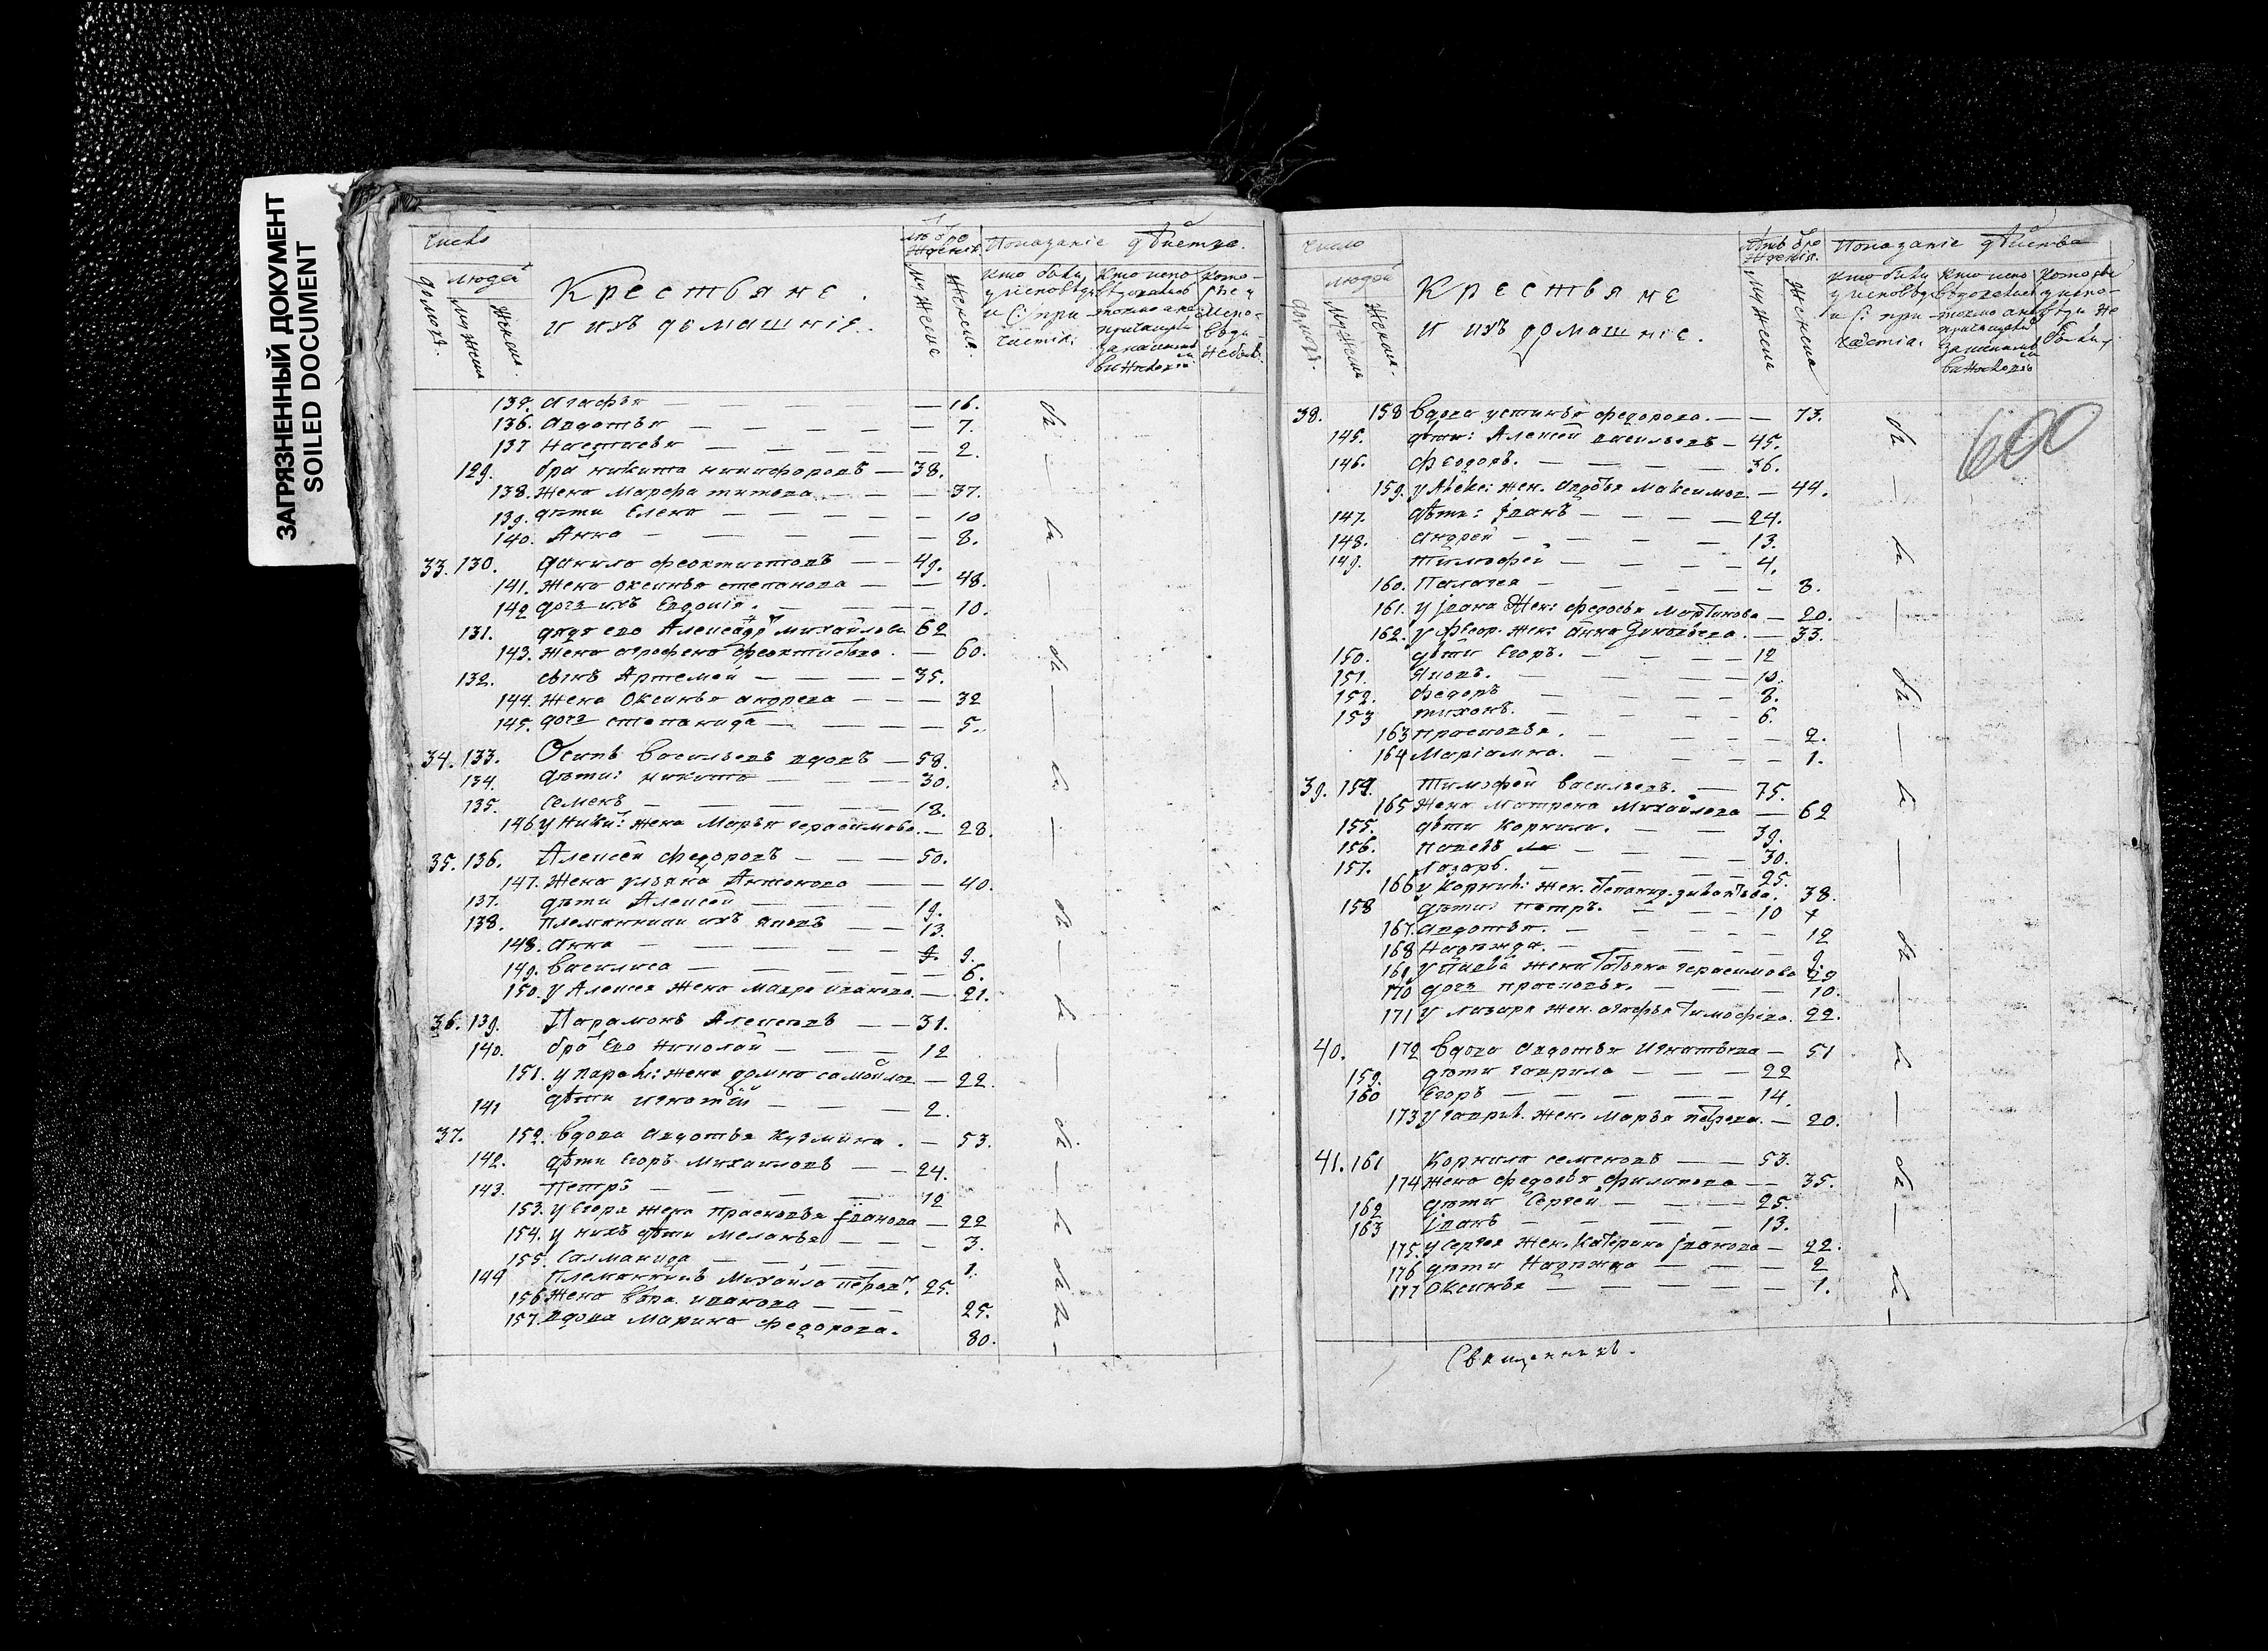 ЗАГРЯЗНЕННЫЙ ДОКУМЕНТ
SOILED DOCUMENT
число
людей
домовъ.
мужеска
женска.
Крестьяне
и ихъ домашніе.
мужеска
женска.
Показаніе действа.
135. Агафья — 16.
136. Авдотья — 7.
137 Настасья — 2.
129. братъ никита никифоровъ — 38.
138. жена Марфа титова — 37.
139. дѣти Елена — 10
140. Анна — 8.
33. 130. Данило феоктистовъ — 49.
141. жена оксинья степанова — 48.
142 дочь ихъ Евдокія. — 10.
131. дядя его Александръ михайловъ 62
143. жена агрофена феоктистова — 60.
132. сынъ Артемей — 35.
144. жена Оксинья андреева — 32
145. дочь степанида — 5.
34. 133. Осипъ васильевъ вдовъ — 58.
134. дѣти: никита — 30.
135. семенъ — 18.
146 у Никит: жена Марья герасимова. — 28.
35. 136. Алексей федоровъ — 50.
147. жена ульяна Антонова — 40.
137. дѣти Алексей — 19.
138. племянники ихъ яковъ — 13.
148. анна — 9.
149. василиса — 6.
150. у Алексея жена мавра иванова. — 21.
36. 139. Парамонъ Алексеевъ — 31.
140. братъ его Николай — 12
151. у парам: жена домна самойлов — 22.
141 дѣти игнатій — 2.
37. 152. вдова авдотья кузмина. — 53.
142. дѣти егоръ михаиловъ — 24.
143. петръ — 12
153. у егора жена прасковья іванова — 22
154. у нихъ дѣти меланья — 3.
155. Салманида — 1.
144 племянникъ михаило петров. 25.
156 жена вѣра иванова — 25.
157. вдова марина федорова. 80.
число
людей
домовъ.
мужеска
женска.
Крестьяне
и ихъ домашніе.
мужеска
женска
Показаніе действа
600
38. 158 вдова устинья федорова. — 73.
145. дѣти: Алексей васильевъ — 45.
146. феодоръ. — 36.
159. у Алекс: жен. авдотья максимов — 44.
147. дѣти: іванъ — 24.
148. андрей — 13.
149. тимофей — 4.
160. Палагея — 8.
161. у івана жен: федосья мартинова — 20.
162. у феор. жен: анна — 33.
150. дѣти егоръ. — 12
151. яковъ. — 10.
152. федоръ — 8.
153 тихонъ. — 6.
163 прасковья. — 2.
164 Маріамна. — 1.
39. 154. тимофей васильевъ. — 75.
165 жена матрена михайлова — 62
155. дѣти корнили. — 39.
156. павелъ — 30.
157. лазарь. — 25.
166 у корнил: жен. 38.
158 дѣти: петръ. — 10
167. авдотья. — 12
168 надежда. — 9.
169 у павла жена татьяна герасимова 29
170 дочь прасковья. — 10.
171 у лазаря жен. агафья тимофеева. 22.
40. 172 вдова авдотья игнатьева — 51
159. дѣти гаврила — 22
160 егоръ — 14.
173 у гаврил. жен. марья петрова. — 20.
41. 161 корнило семеновъ — 53.
174 жена федосья филипова — 35.
162 дѣти Сергей — 25.
163 іванъ — 13.
175. у сергея жен. катерина іванова — 22.
176 дѣти надежда — 2
177 оксинья — 1.
Священникъ.